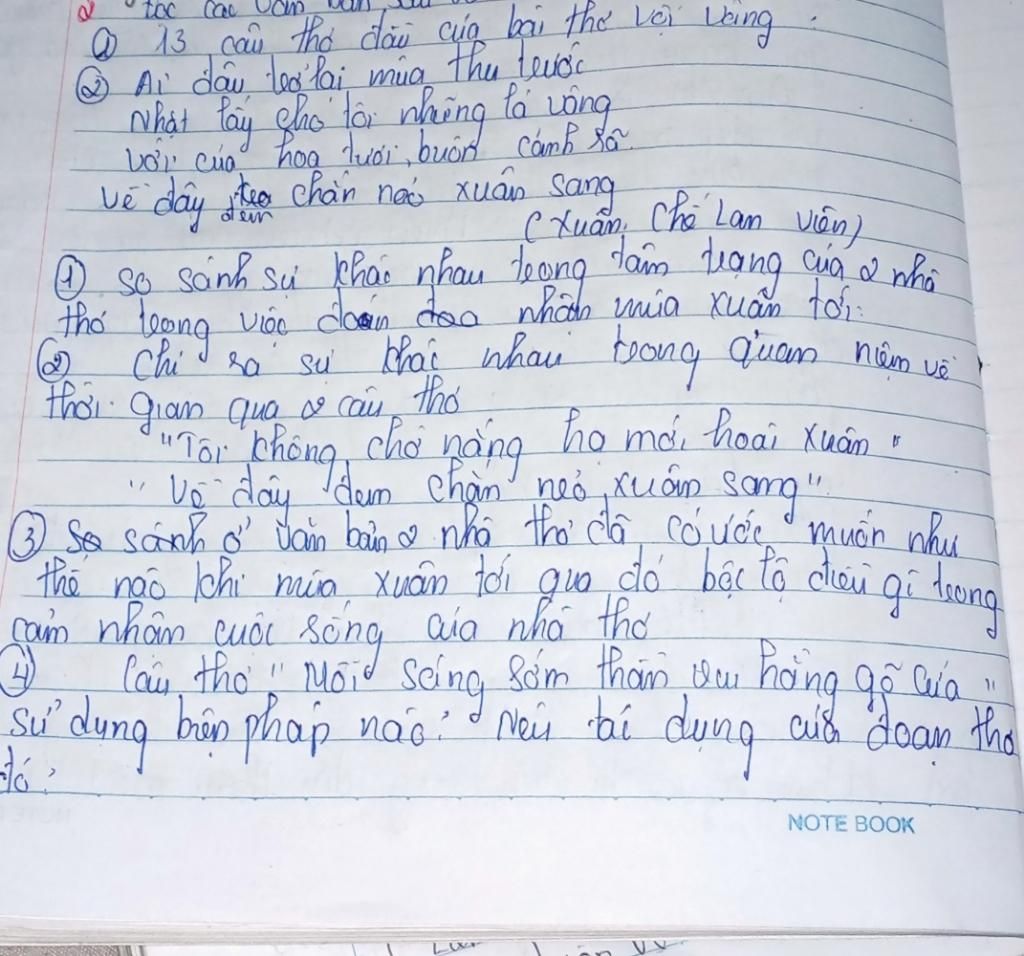 2 đọc các văn bản sau
① 13 câu thơ đầu của bài thơ Vội vàng :
② Ai đâu trở lại mùa thu trước
Nhặt lấy cho tôi những lá vàng
Với của hoa tươi, muôn cánh rã
Về đây đem chắn nẻo xuân sang
( Xuân, Chế Lan Viên)
① So sánh sự khác nhau trong tâm trạng của 2 nhà
thơ trong việc đón nhận mùa xuân tới.
② Chỉ ra sự khác nhau trong quan niệm về
thời gian qua 2 câu thơ
"Tôi không chờ nắng hạ mới hoài xuân"
"Về đây đem chắn nẻo xuân sang"
③ So sánh ở văn bản 2 nhà thơ đã có ước muốn như
thế nào khi mùa xuân tới qua đó bộc lộ điều gì trong
cảm nhận cuộc sống của nhà thơ
④ Câu thơ "Mỗi sáng sớm thần vui hằng gõ cửa"
sử dụng biện pháp nào? Nêu tác dụng của đoạn thơ
đó?
NOTE BOOK